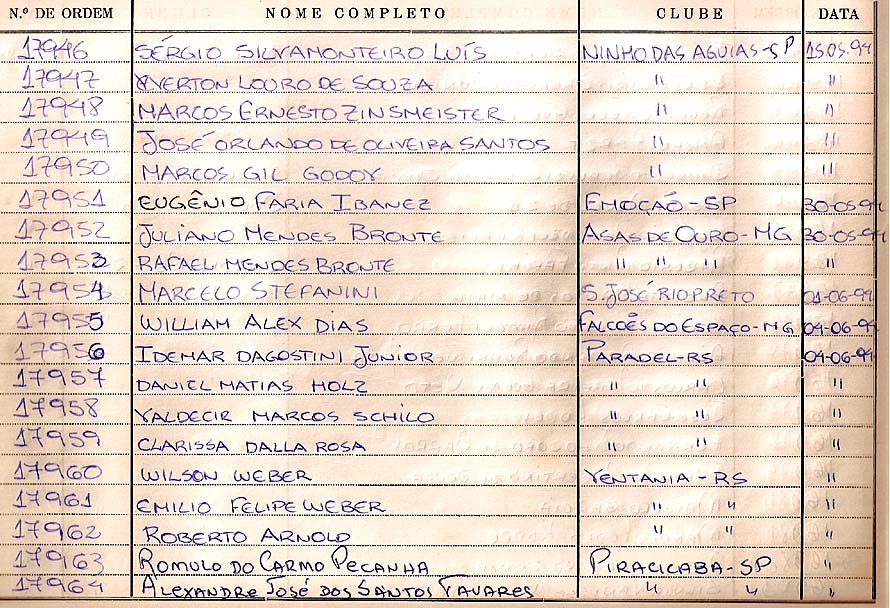 N.º DE ORDEM NOME COMPLETO CLUBE DATA
17946 SÉRGIO SILVAMONTEIRO LUÍS NINHO DAS AGUIAS-SP 15.05.94
17947 WERTON LOURO DE SOUZA " "
17948 MARCOS ERNESTO ZINSMEISTER " "
17949 JOSÉ ORLANDO DE OLIVEIRA SANTOS " "
17950 MARCOS GIL GODOY " "
17951 EUGÊNIO FARIA IBANEZ EMOÇÃO-SP 30-05-94
17952 JULIANO MENDES BRONTE ASAS DE OURO-MG 30-05-94
17953 RAFAEL MENDES BRONTE " " " "
17954 MARCELO STEFANINI S. JOSÉ RIO PRETO 01-06-94
17955 WILLIAM ALEX DIAS FALCÕES DO ESPAÇO-MG 04-06-94
17956 IDEMAR DAGOSTINI JUNIOR PARADEL-RS 04-06-94
17957 DANIEL MATIAS HOLZ " " "
17958 VALDECIR MARCOS SCHILO " " "
17959 CLARISSA DALLA ROSA " " "
17960 WILSON WEBER VENTANIA-RS "
17961 EMILIO FELIPE WEBER " " "
17962 ROBERTO ARNOLD " " "
17963 ROMULO DO CARMO PECANHA PIRACICABA-SP "
17964 ALEXANDRE JOSÉ DOS SANTOS TAVARES " " "